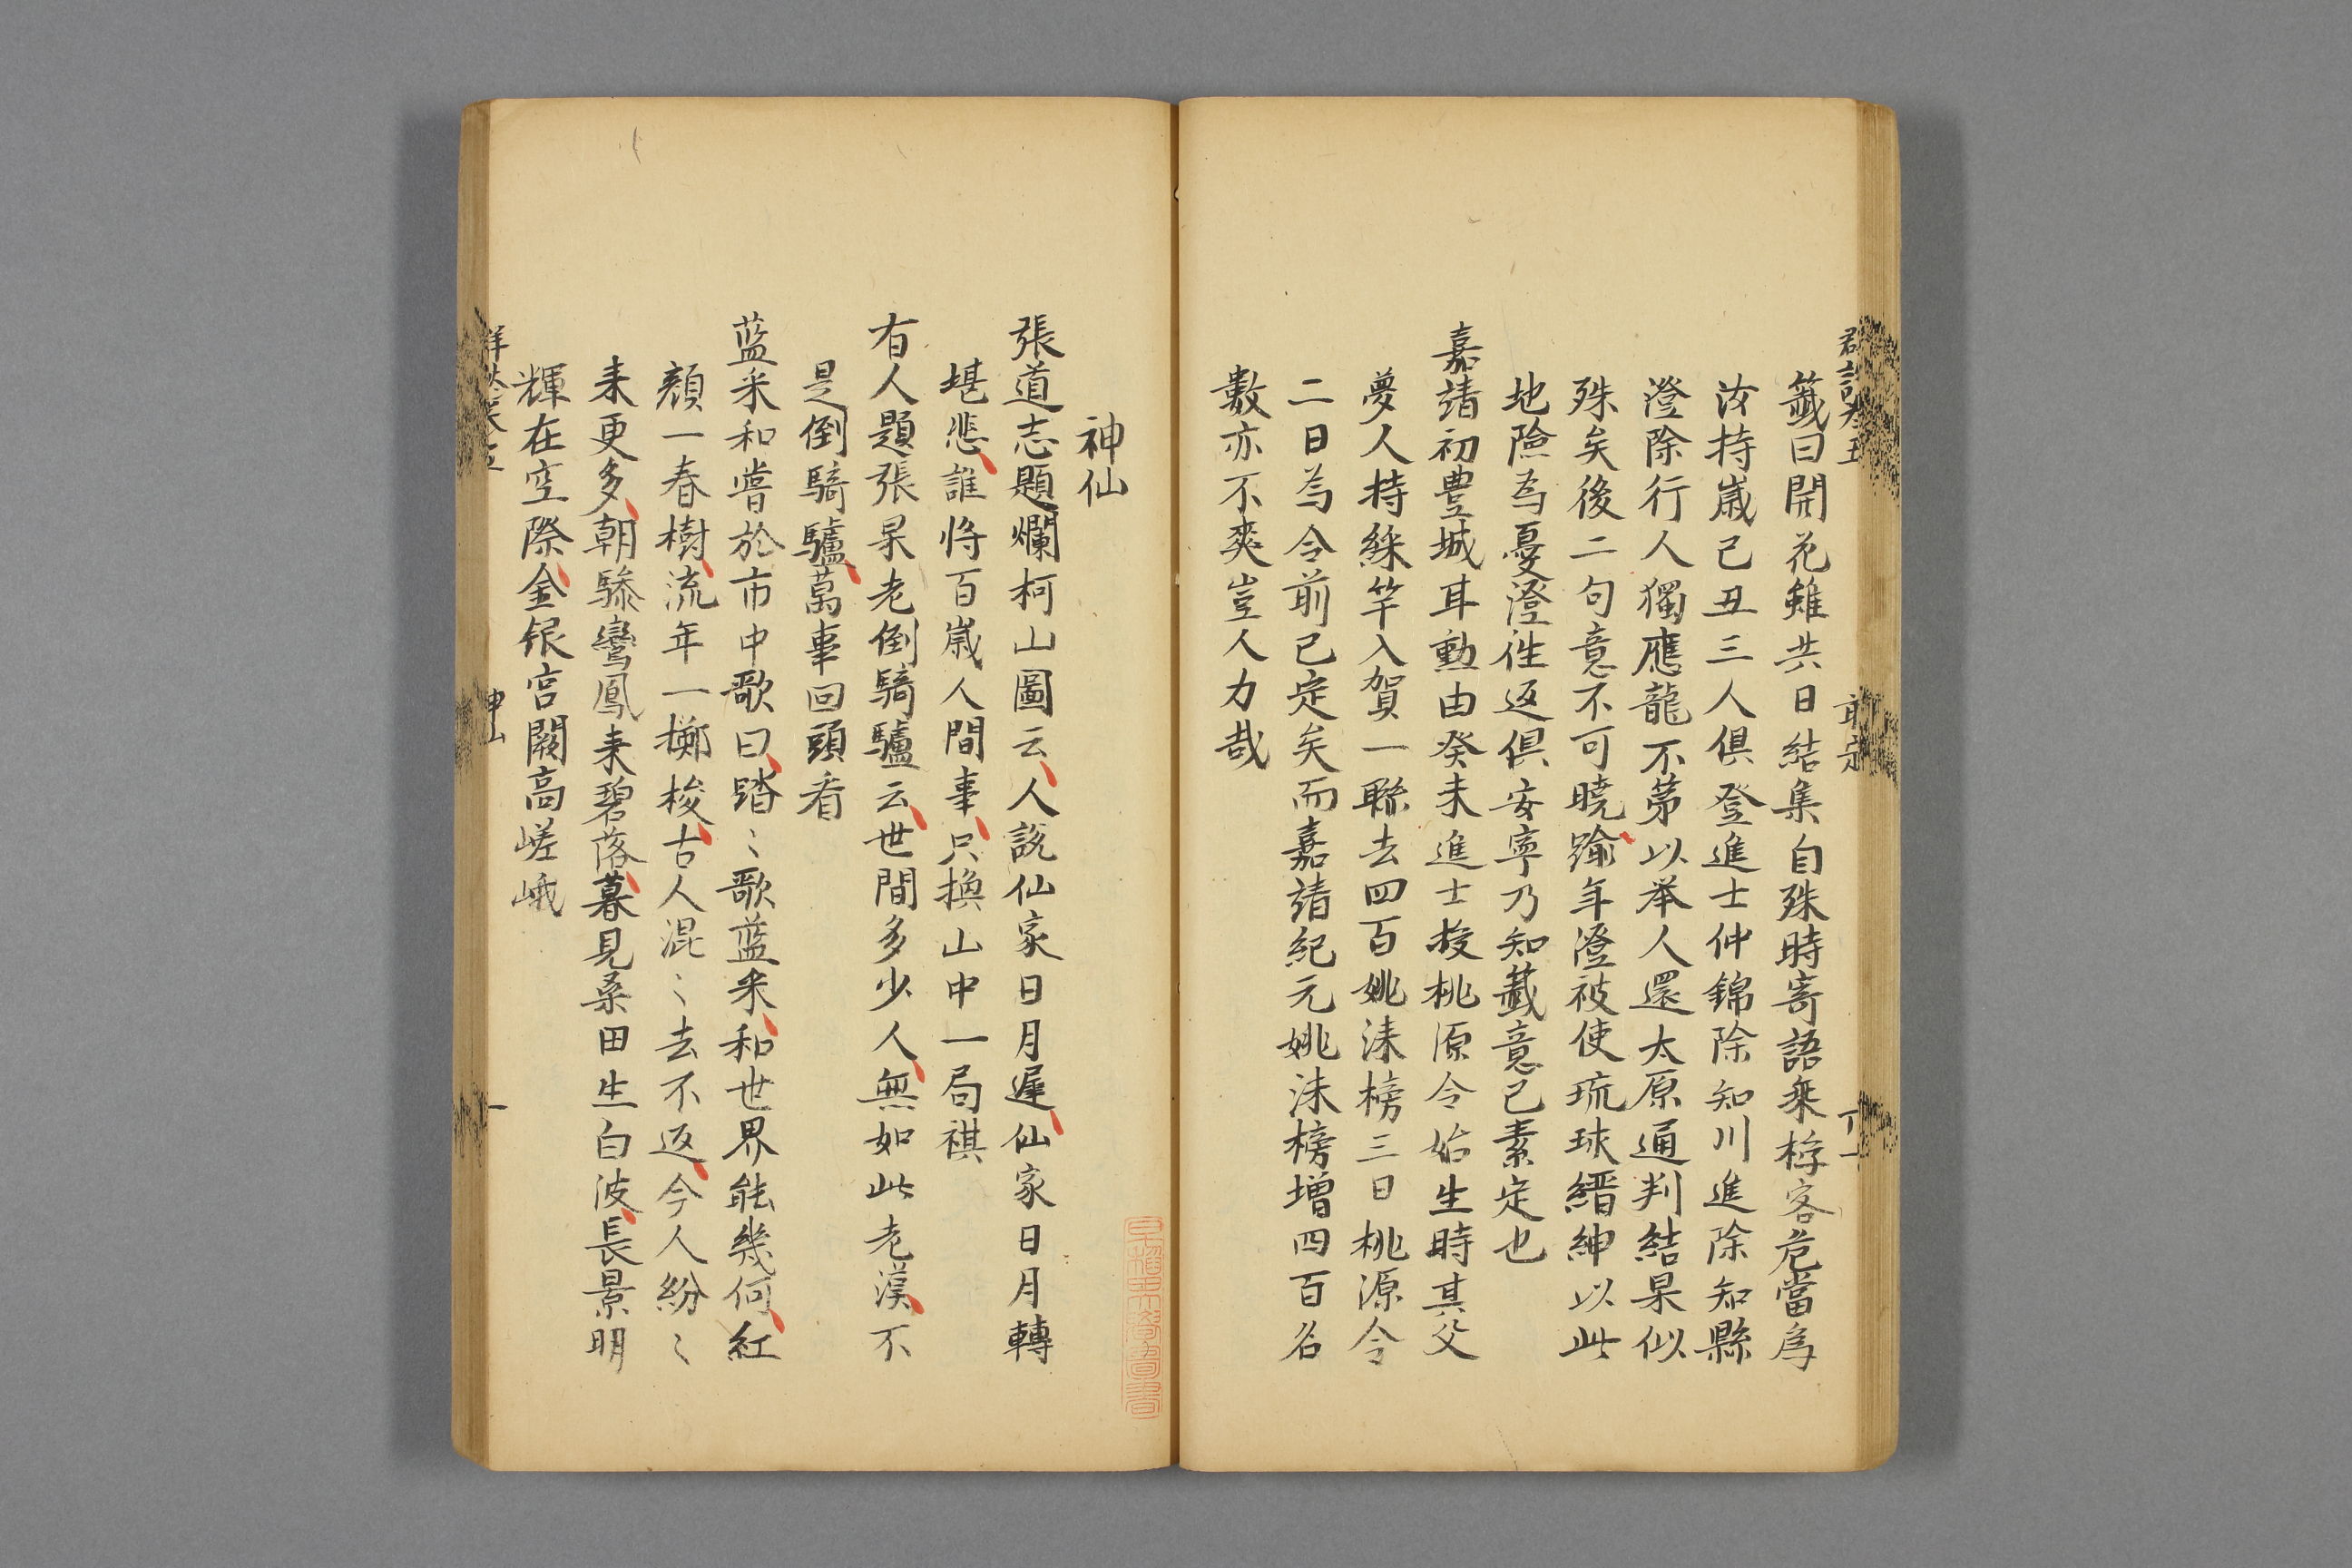 籤曰開花雖共日結集自殊時寄語乘桴客危當爲
汝持嵗已丑三人俱登進士仲錦除知川進除知縣
澄除行人獨應龍不第以举人還太原通判結果似
殊矣後二句意不可曉踰年澄被使琉球縉紳以此
地險為憂澄徃返俱安寧乃知籤意已素定也
嘉靖初豊城耳勳由癸未進士授桃源令始生時其父
夢人持綵竿入賀一聨去四百姚淶榜三日桃源令
二日為令前已定矣而嘉靖紀元姚淶榜增四百名
數亦不爽豈人力哉
神仙
張道志題爛柯山圖云人說仙家日月遲仙家日月轉
堪悲誰将百嵗人間事只換山中一局祺
有人題張果老倒騎驢云世間多少人無如此老漢不
是倒騎驢萬事回頭看
蓝采和嘗於市中歌曰踏〻歌蓝采和世界能幾何紅
顔一春樹流年一擲梭古人混〻去不返今人紛〻
来更多朝驂鸞鳳来碧落暮見桑田生白波長景明
輝在空際金银宫闕高嵯峨